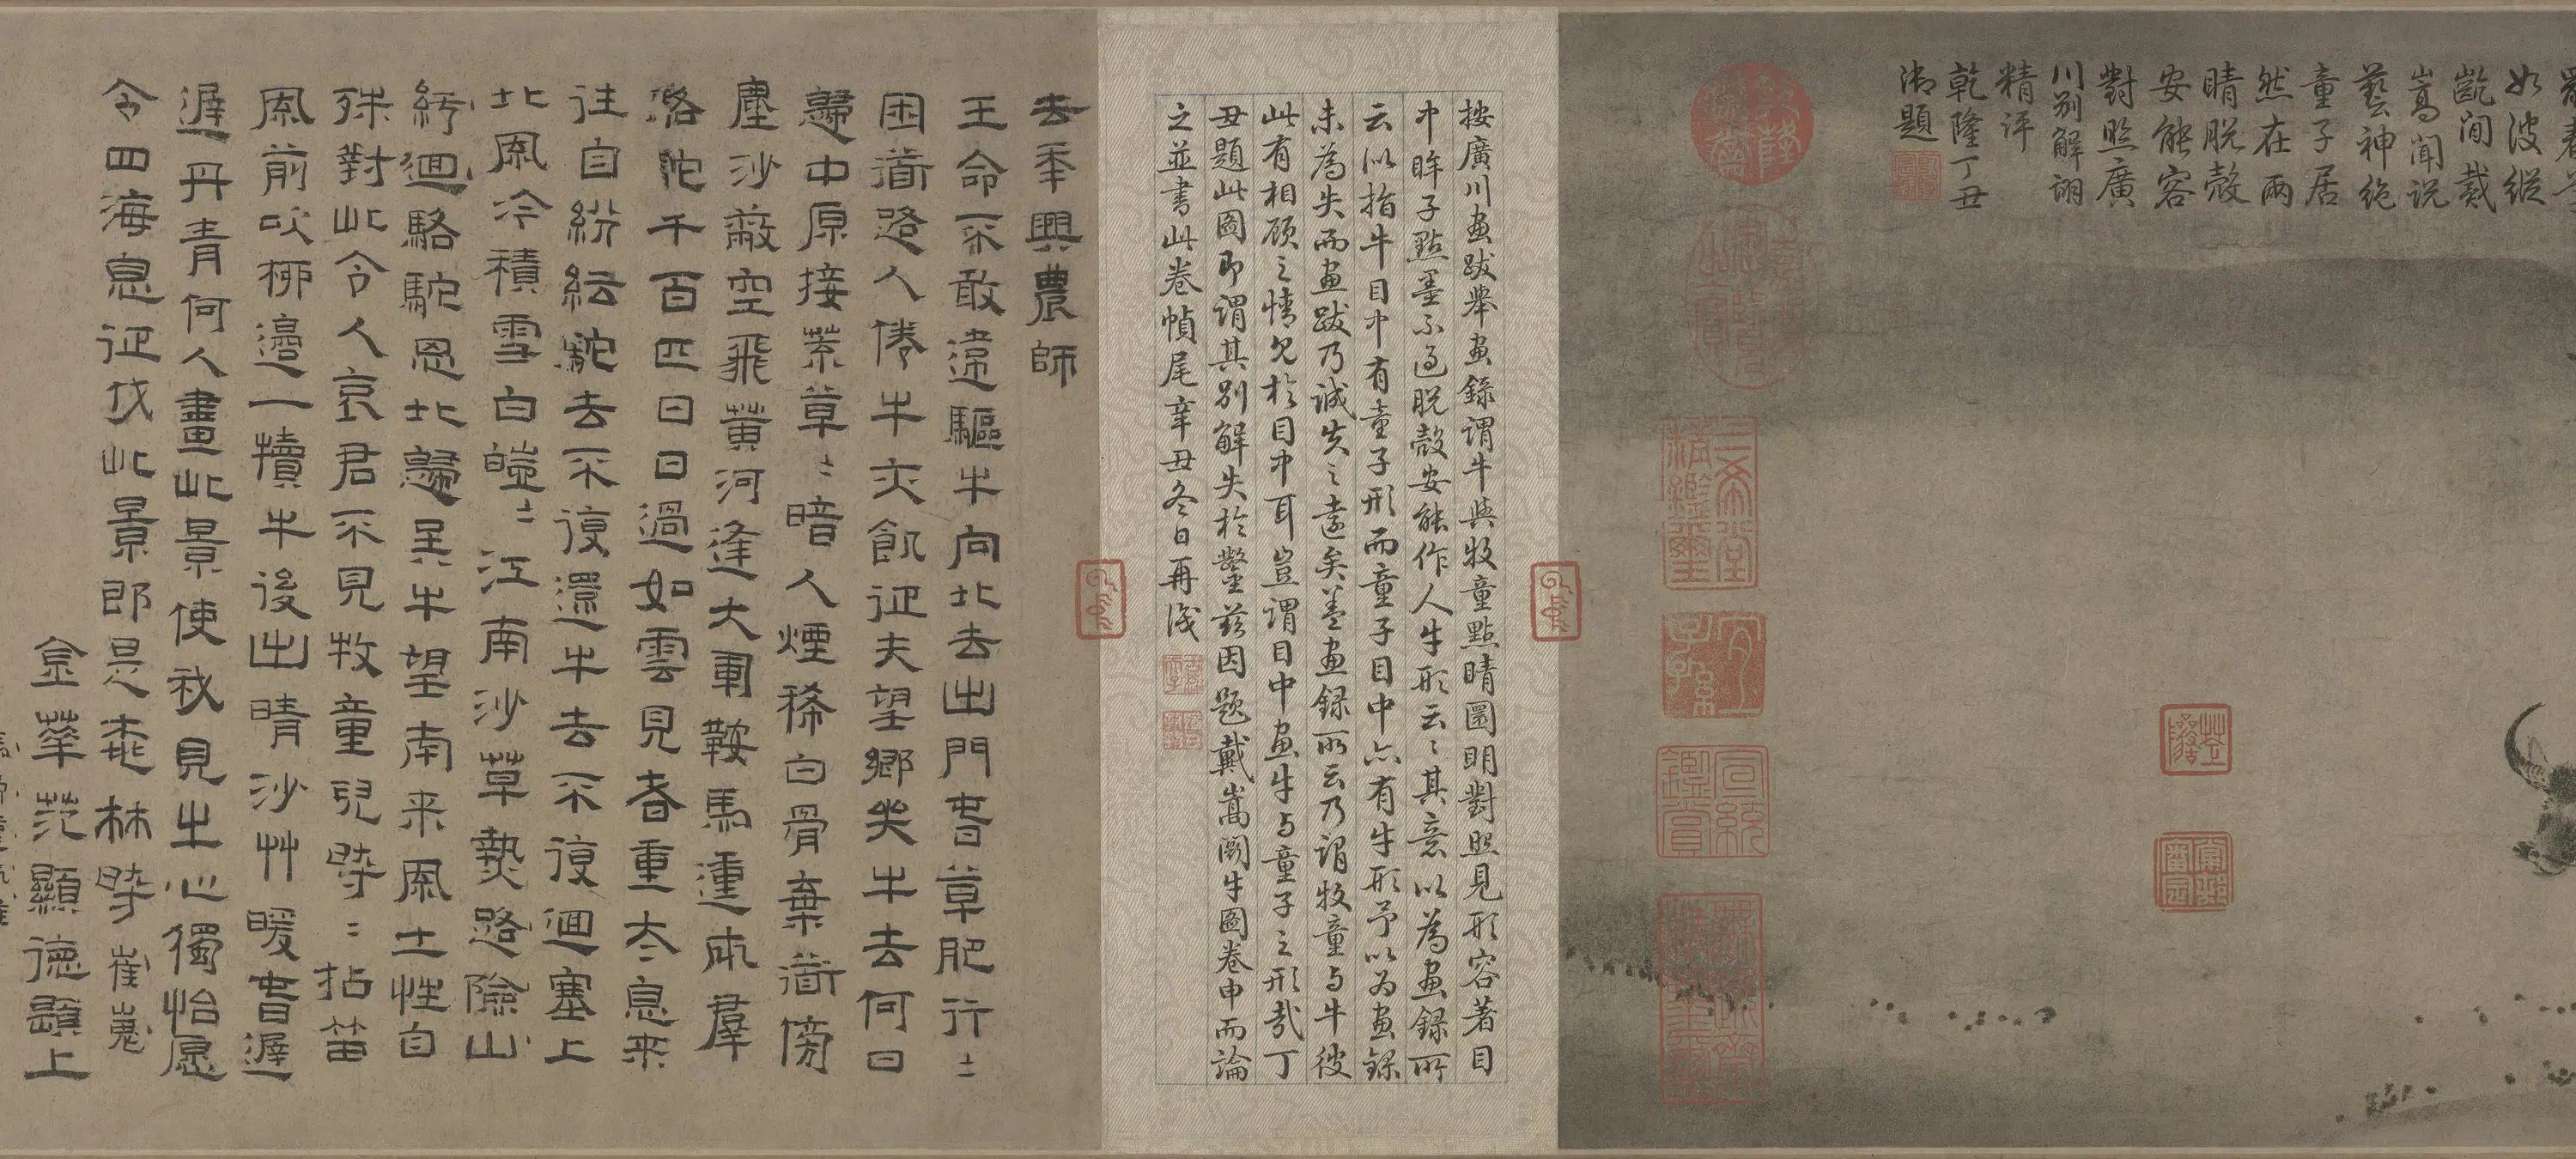 如波縱
齕間戴
嵩聞説
藝神絶
童子居
然在兩
睛脱殼
安能容
對照廣
川别解詡
精評
乾隆丁丑
御題
三希堂精鑑璽
宜子孫
宣統鑑賞
無逸齋精鑑璽
按廣川畫跋舉畫錄謂牛與牧童點睛圓明對照見形容著目
中眸子點墨不過脱殼安能作人牛形云云其意以為畫録所
云以指牛目中有童子形而童子目中亦有牛形予以為畫録
未為失而畫跋乃誠失之遠矣蓋畫録所云乃謂牧童与牛彼
此有相顧之情見於目中耳豈謂目中畫牛与童子之形哉丁
丑題此圖即謂其别解失於鑿茲因題戴嵩鬬牛圖卷申而論
之並書此卷幀尾辛丑冬日再識
去年興農師
王命不敢違驅牛向北去出門春草肥行〻
困道路人倦牛亦飢征夫望鄉哭牛去何日
歸中原接荒草〻暗人煙稀白骨棄道傍
塵沙蔽空飛黃河逢大軍鞍馬連成群
駱駝千百匹日日過如雲見者重太息来
往自紛紜駝去不復還牛去不復迴塞上
北風冷積雪白皚〻江南沙草熱路險山
紆迴駱駝思北歸吳牛望南来風土性自
殊對此令人哀君不見牧童兒時〻拈笛
風前吹柳邊一犢牛後出晴沙艸暖春遲
遲丹青何人畫此景使我見之心獨怡愿
令四海息征伐此景即是桃林時 崔嵬
金華范顯德顯上